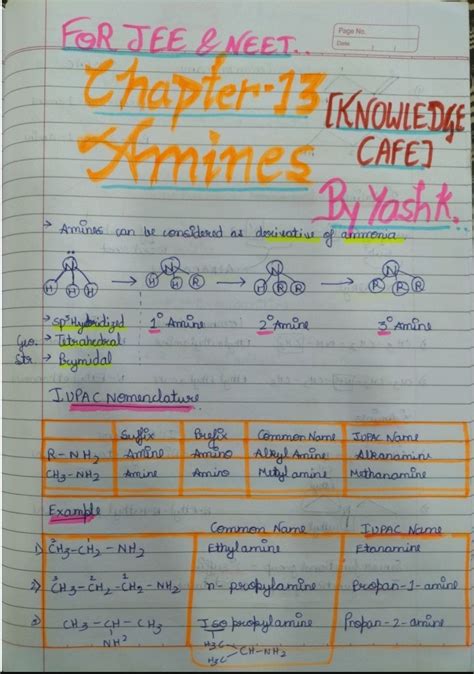 FOR JEE & NEET..
Page No.
Date
Chapter-13
Amines
[KNOWLEDGE
CAFE]
By Yash K.
→ Amines can be considered as derivative of ammonia.
N̈ → N → N → N
H H H H H R H R R R R R
→ sp³ Hybridized 1° Amine 2° Amine 3° Amine
Geo. → Tetrahedral
Str. → Pyrmidal
IUPAC Nomenclature
Suffix Prefix Common Name IUPAC Name
R - NH₂ Amine Amino Alkyl Amine Alkanamine
CH₃ - NH₂ Amine Amino Metyl amine Methanamine
Example
Common Name IUPAC Name
1) CH₃ - CH₂ - NH₂ Ethylamine Etanamine
2) CH₃ - CH₂ - CH₂ - NH₂ n - propylamine Propan - 1 - amine
3) CH₃ - CH - CH₃ Iso propylamine Propan - 2 - amine
NH²
H₃C
H₃C CH - NH₂